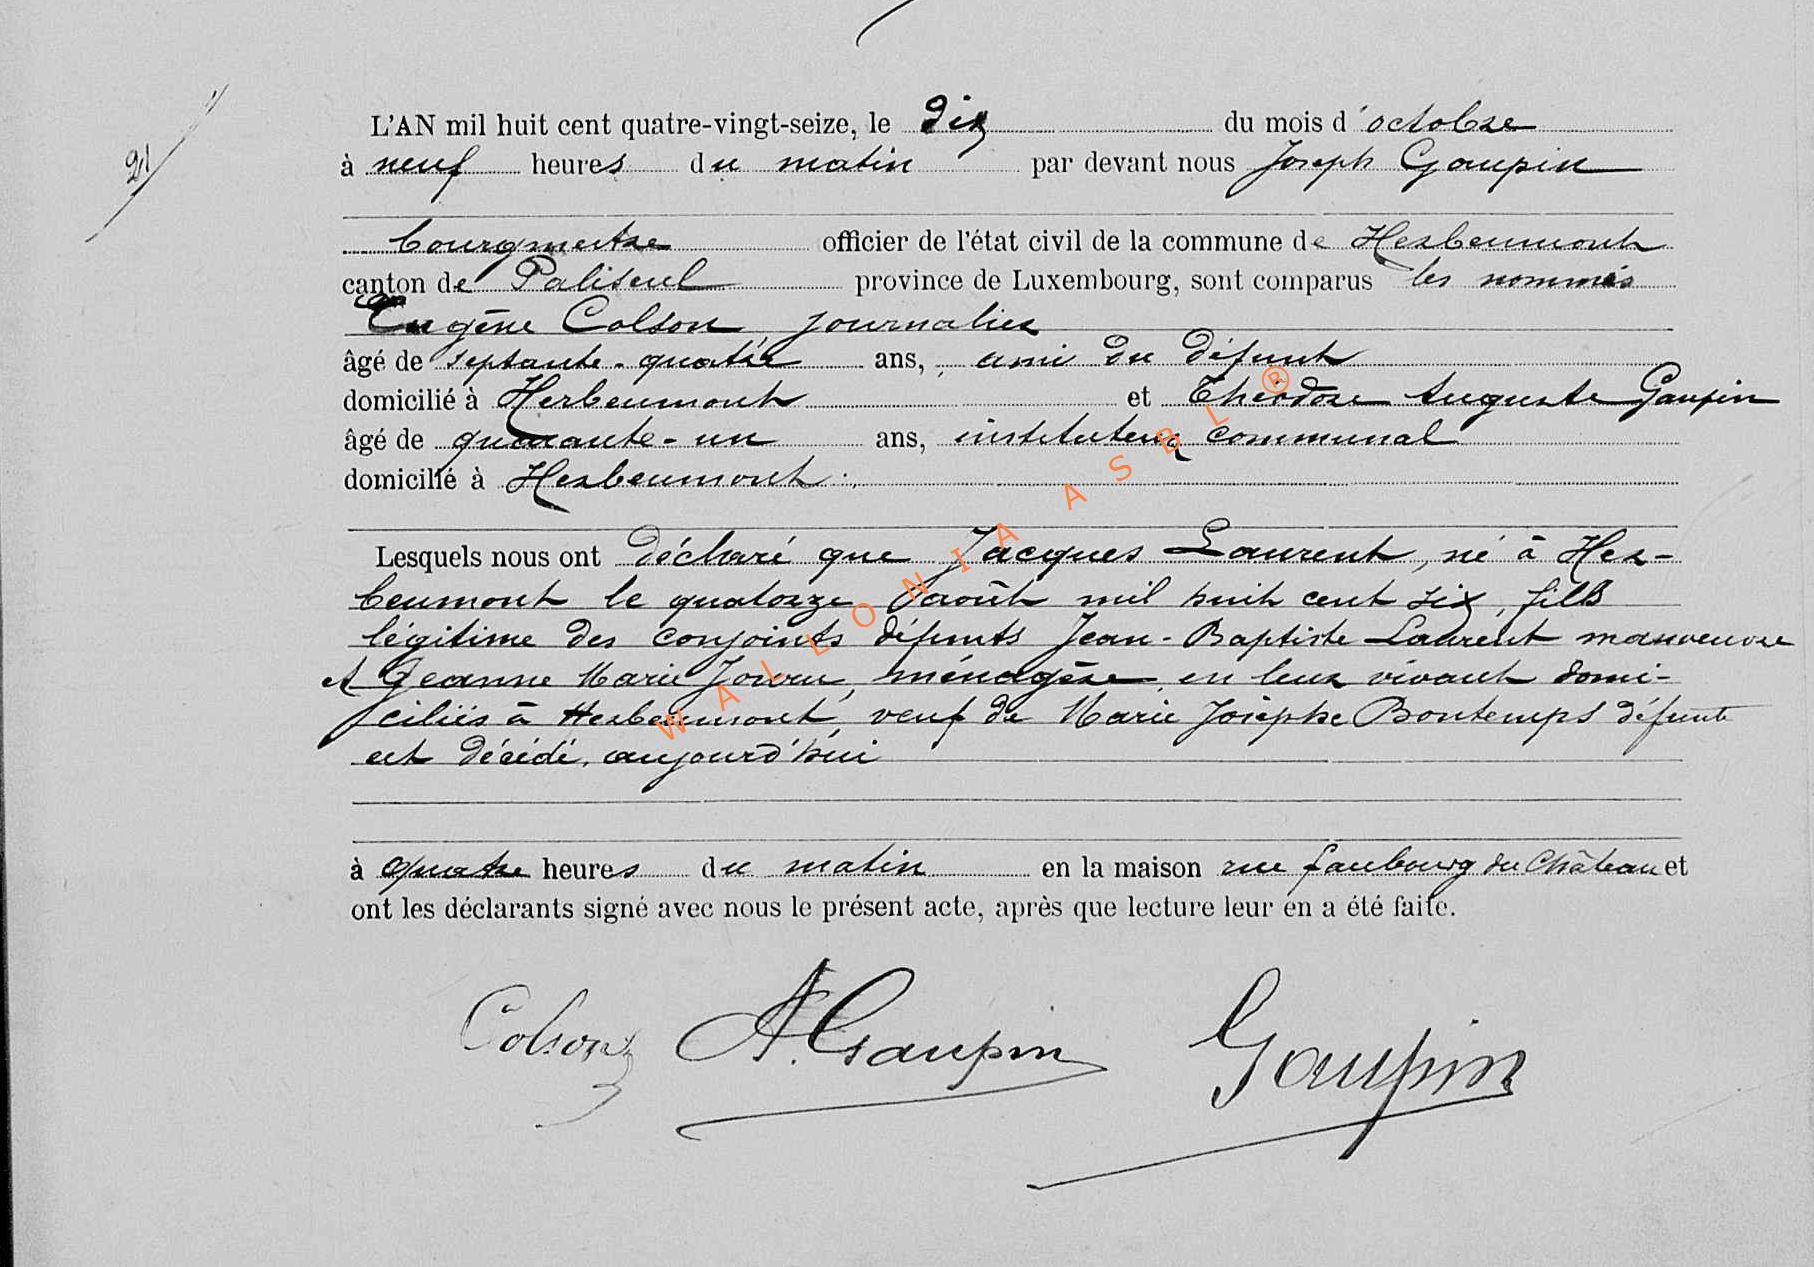 L'AN mil huit cent quatre-vingt-seize, le dix du mois d'octobre
21
à neuf heures du matin par devant nous Joseph Gaupin
bourgmestre officier de l'état civil de la commune de Herbeumont
canton de Paliseul province de Luxembourg, sont comparus les nommés
Eugène Colson journalier
âgé de septante-quatre ans, ami du défunt
domicilié à Herbeumont et Théodore Auguste Gaupin
âgé de quarante-un ans, instituteur communal
domicilié à Herbeumont.
Lesquels nous ont déclaré que Jacques Laurent, né à Her-
beumont le quatorze août mil huit cent six, fils
légitime des conjoints défunts Jean-Baptiste Laurent manoeuvre
et Jeanne Marie Jouru, ménagère, en leur vivant domi-
ciliés à Herbeumont, veuf de Marie Josèphe Bontemps défunte
est décédé, aujourd'hui
à quatre heures du matin en la maison rue faubourg du Château et
ont les déclarants signé avec nous le présent acte, après que lecture leur en a été faite.
Colson A. Gaupin Gaupin
WALLONIA ASBL ®